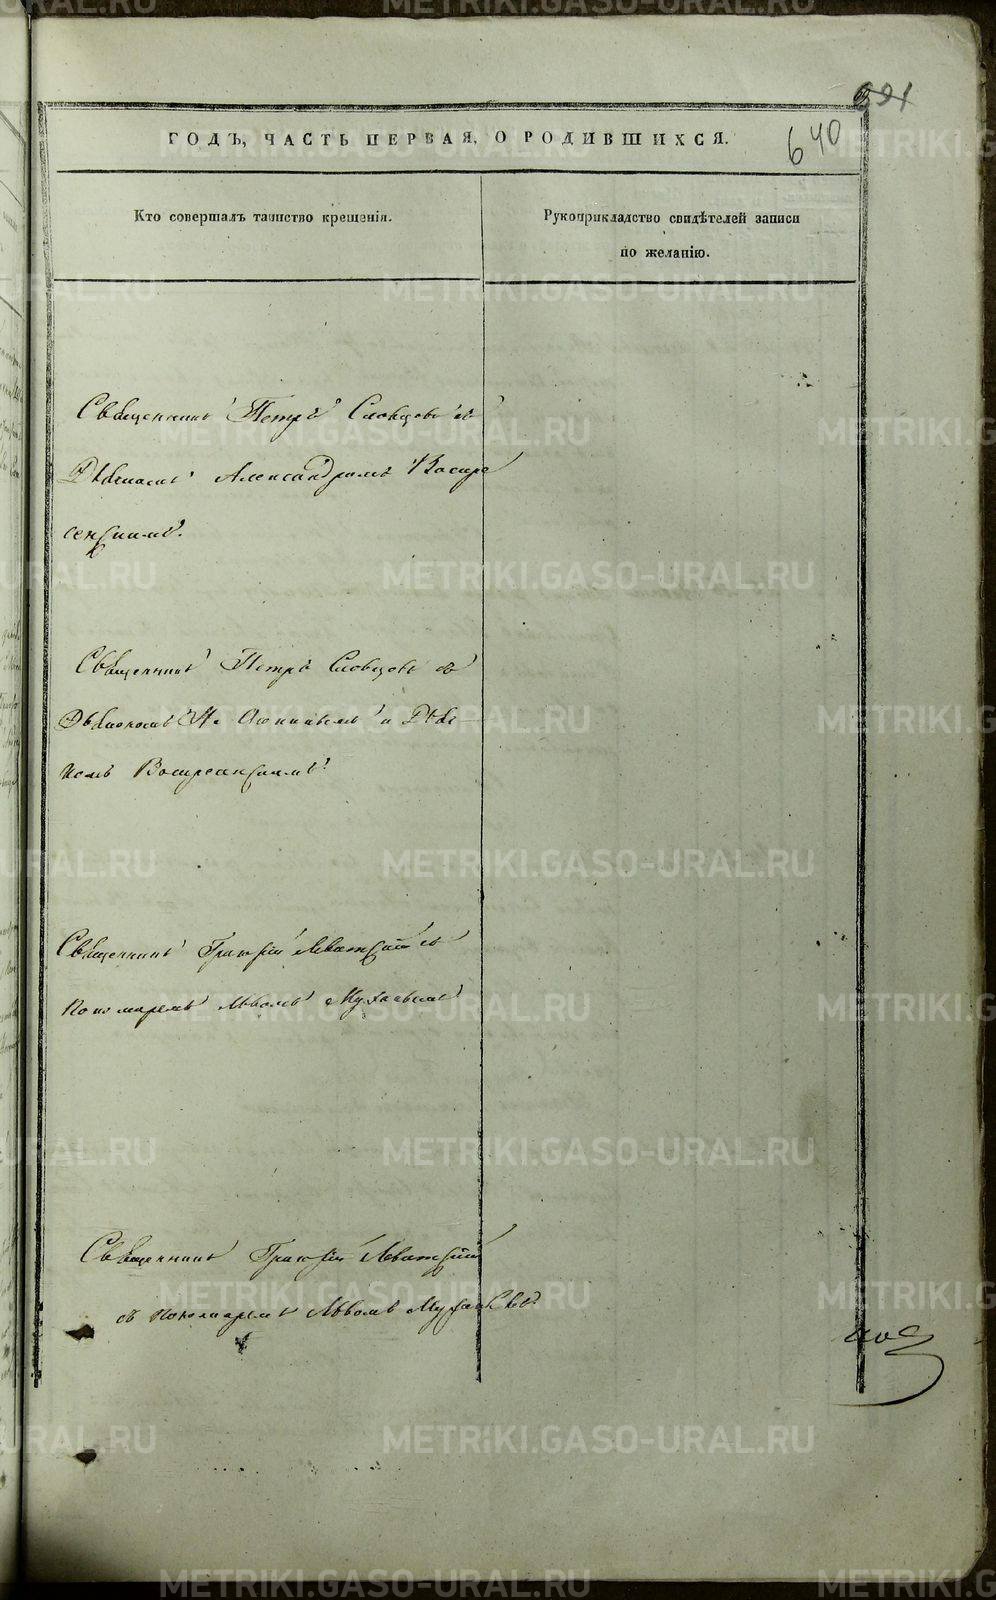 691
640
ГОДЪ, ЧАСТЬ ПЕРВАЯ, О РОДИВШИХСЯ.
Кто совершалъ таинство крещенія.
Рукоприкладство свидѣтелей записи
по желанію.
Священникъ Петръ Словцовъ съ
Діакономъ Александромъ Воскре
сенскимъ.
Священникъ Петръ Словцовъ съ
Діакономъ и
комъ Воскресенскимъ.
Священникъ Левитскій съ
Пономаремъ Львомъ
Священникъ Левитскій
съ Пономаремъ Львомъ
METRIKI.GASO-URAL.RU